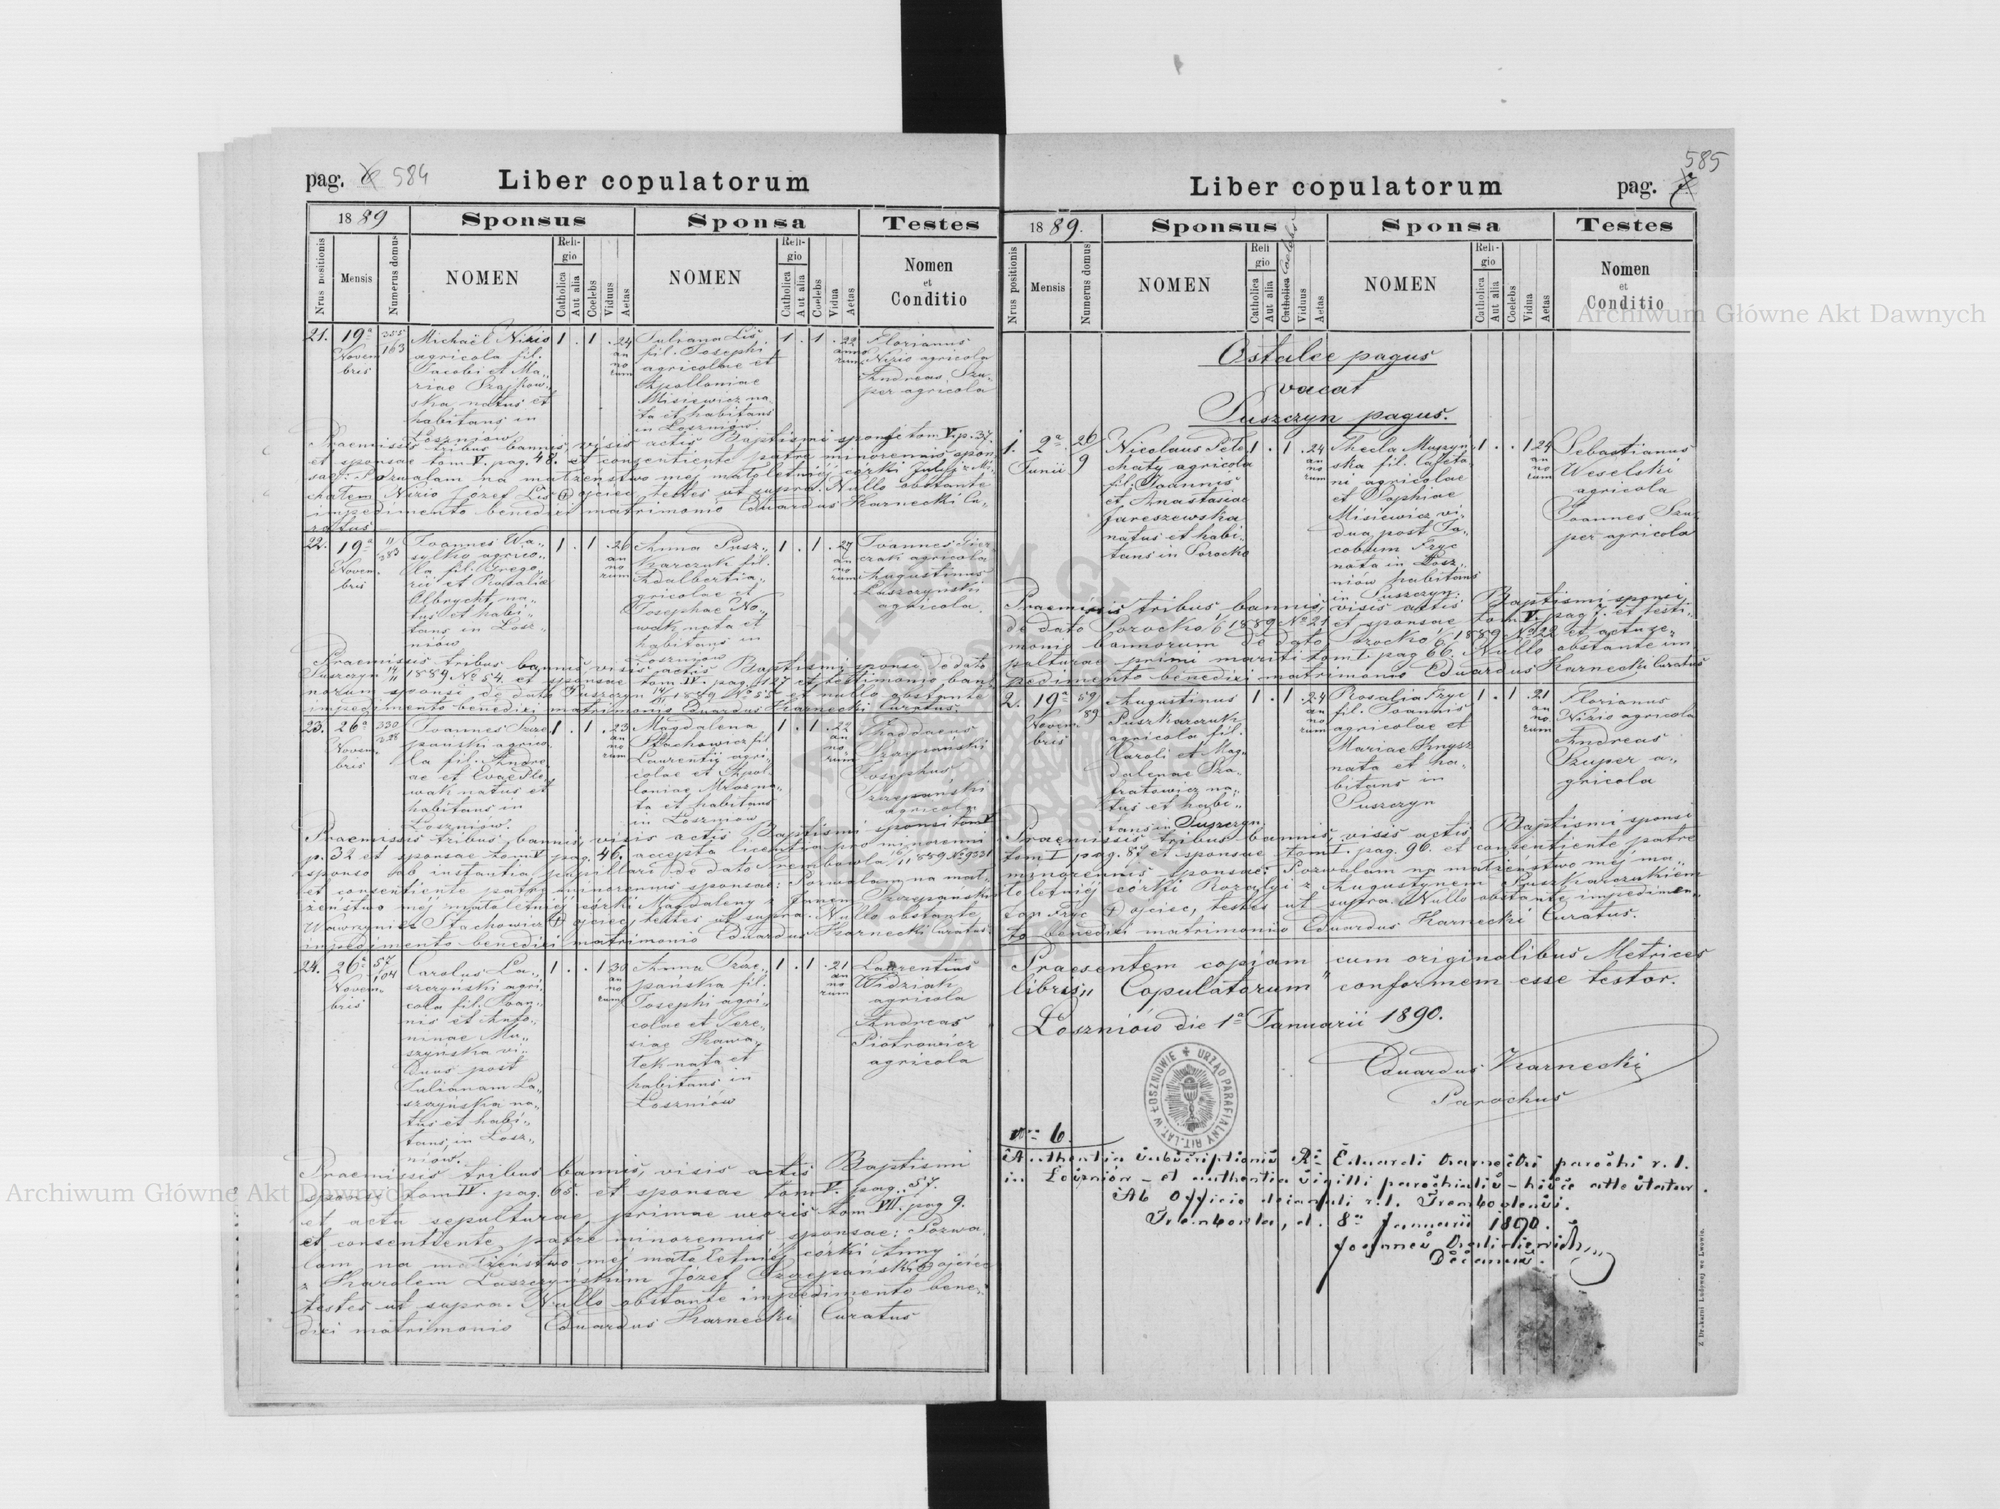 pag. 584
Liber copulatorum
1889
Sponsus
Sponsa
Testes
Nrus positionis
Mensis
Numerus domus
NOMEN
Religio
Catholica
Aut alia
Coelebs
Viduus
Aetas
NOMEN
Religio
Catholica
Aut alia
Coelebs
Vidua
Aetas
Nomen
et
Conditio
21. 19a Novembris
355
163
Michaël Nizio
agricola fil.
Jacobi et Ma„
riae
ska natus et
habitans in
Łoszniów
1 . 1 . 24 annorum
Juliana Lis
fil. Josephi
agricolae et
Apolloniae
Misiewicz na„
ta et habitans
in Łoszniów
1 . 1 . 22 annorum
Florianus
Nizio agricola
Andreas Szu„
per agricola
Praemissis tribus bannis, visis actis Baptismi sponsi tom V. p. 37.
et sponsae tom V. pag. 48. et consentiente patre minorennis spon„
sae: Pozwalam na małżeństwo mej małoletniéj córki Julii z Mi„
chałem Nizio Józef Lis ojciec, testes ut supra. Nullo obstante
impedimento benedixi matrimonio Eduardus Karnecki Cu„
ratus
22. 19a Novembris
11
283
Joannes Wa„
sylko agrico„
la fil. Grego„
rii et Rosaliae
Albrycht, na„
tus et habi„
tans in Łosz„
niów
1 . 1 . 26 annorum
Anna Pusz„
karczuk fil.
Adalberti a„
gricolae et
Josephae No„
wak nata et
habitans in
Łoszniów
1 . 1 . 27 annorum
Joannes
agricola
Augustinus
Łaszczyński
agricola.
Praemissis tribus bannis visis actis Baptismi sponsi de dato
Suszczyn 14/11 1889 No 54. et sponsae tom IV. pag. 127 et testimonio ban„
norum sponsi de dato Suszczyn 14/11 1889 No 55 et nullo obstante
impedimento benedixi matrimonio Eduardus Karnecki Curatus.
23. 26a Novembris
330
228
Joannes Szcze„
pański agrico„
la fil. Andre„
ae et Evae
natus et
habitans in
Łoszniów.
1 . 1 . 23 annorum
Magdalena
Stachowicz fil.
Laurentii agri„
colae et Apol„
loniae Mroz na„
ta et habitans
in Łoszniów
1 . 1 . 22 annorum
Thaddaeus
Szczepański
Josephus
Szczepański
agricola
Praemissis tribus bannis, visis actis Baptismi sponsi tom V
p. 32 et sponsae tom V pag. 46. accepta licentia pro minorenni
sponso ab instantia pupillari de dato Trembowla 16/11 1889 No 9331
et consentiente patre minorennis sponsae: Pozwalam na mał„
żeństwo méj małoletniéj córki Magdaleny z Janem Szczepańskim
Wawrzyniec Stachowicz ojciec, testes ut supra. Nullo obstante
impedimento benedixi matrimonio Eduardus Karnecki Curatus
24. 26a Novembris
57
104
Carolus Ła„
szczyński agri„
cola fil. Joan„
nis et Anto„
ninae Mu„
szyńska vi„
duus post
Julianam Ła„
szczyńska na„
tus et habi„
tans, in Łosz„
niów.
1 . . 1 30 annorum
Anna Szcze„
pańska fil.
Josephi agri„
colae et Tere„
siae Kawa„
łek nata et
habitans in
Łoszniów
1 . 1 . 21 annorum
Laurentius
Widziak
agricola
Andreas
Piotrowicz
agricola
Praemissis tribus bannis, visis actis Baptismi
sponsi tom IV. pag. 65. et sponsae tom V. pag. 57.
et acta sepulturae, primae uxoris tom VII. pag 9.
et consentiente patre minorennis sponsae: Pozwa„
lam na małżeństwo méj małoletniéj córki Anny
z Karolem Łaszczyńskim Józef Szczepański ojciec
testes ut supra. Nullo obstante impedimento bene„
dixi matrimonio Eduardus Karnecki Curatus
585
Liber copulatorum
pag. 7
1889.
Sponsus
Sponsa
Testes
Nrus positionis
Mensis
Numerus domus
NOMEN
Religio
Catholica
Aut alia
Coelebs
Viduus
Aetas
NOMEN
Religio
Catholica
Aut alia
Coelebs
Vidua
Aetas
Nomen
et
Conditio
Ostalce pagus
vacat
Suszczyn pagus.
1. 2a Junii
26
9
Nicolaus Pełe„
chaty agricola
fil. Joannis
et Anastasiae
Jareszewska
natus et habi„
tans in Sorocko
1 . 1 . 24 annorum
Thecla Muszyń„
ska fil. Cajeta„
ni agricolae
et Sophiae
Misiewicz vi„
dua post Ja„
cobum Fryc
nata in Łosz„
niów habitans
in Suszczyn.
1 . . 1 24 annorum
Sebastianus
Weselski
agricola
Joannes Szu„
per agricola
Praemissis tribus bannis, visis actis Baptismi sponsi,
de dato Sorocko 1/6 1889 No 21 et sponsae tom V. pag 7. et testi„
monio bannorum de dato Sorocko 1/6 1889 No 22 et actu se„
pulturae primi mariti tom I. pag 66. Nullo obstante im„
pedimento benedixi matrimonio Eduardus Karnecki Curatus
2. 19a Novembris
59
89
Augustinus
Puszkarczuk
agricola fil.
Caroli et Mag„
dalenae Sza„
fratowicz na„
tus et habi„
tans in Suszczyn
1 . 1 . 24 annorum
Rosalia Fryc
fil. Joannis
agricolae et
Mariae Knysz
nata et ha„
bitans in
Suszczyn
1 . 1 . 21 annorum
Florianus
Nizio agricola
Andreas
Szuper a„
gricola
Praemissis tribus bannis, visis actis Baptismi sponsi
tom I pag. 87 et sponsae tom I. pag. 96. et consentiente patre
minorennis sponsae: Pozwalam na małżeństwo méj ma„
łoletniéj córki Rozalyi z Augustynem Puszkarczukiem
Jan Fryc + ojciec, testes ut supra. Nullo obstante impedimen„
to benedixi matrimonio Eduardus Karnecki Curatus.
Praesentem copiam cum originalibus Metrices
libris „Copulatorum" conformem esse testor.
Łoszniów die 1a Januarii 1890.
Eduardus Karnecki
Parochus
URZĄD PARAFIALNY RIT. LAT. W ŁOSZNIOWIE
Nro 6.
Authentia subscriptionis Rdi Eduardi Karnecki parochi r. l.
in Łoszniów – et authentia sigilli parochialis – hisce attestatur.
Ab Officio decanali r. l. Trembovlensi.
Trembovla, d. 8va Januarii 1890.
Joannes
Decanus.
Z Drukarni Ludowej we Lwowie.
Archiwum Główne Akt Dawnych
Archiwum Główne Akt Dawnych